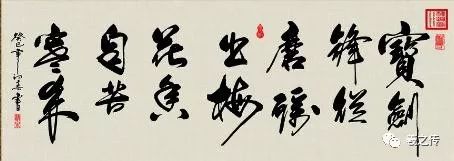 寶劍
鋒從
磨礪
出梅
花香
自苦
寒來
癸巳年
書
羲之传